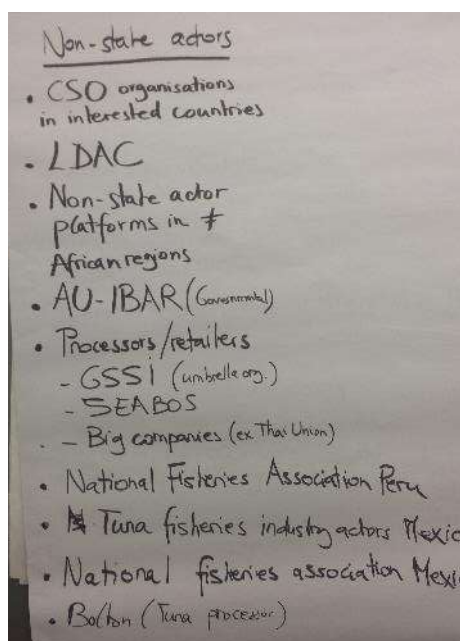 Non-state actors
• CSO organisations
in interested countries
• LDAC
• Non-state actor
platforms in ≠
African regions
• AU-IBAR (Governmental)
• Processors/retailers
- GSSI (umbrella org.)
- SEABOS
- Big companies (ex Thai Union)
• National Fisheries Association Peru
• Tuna fisheries industry actors Mexic
• National fisheries association Mexic
• Bolton (Tuna processor)